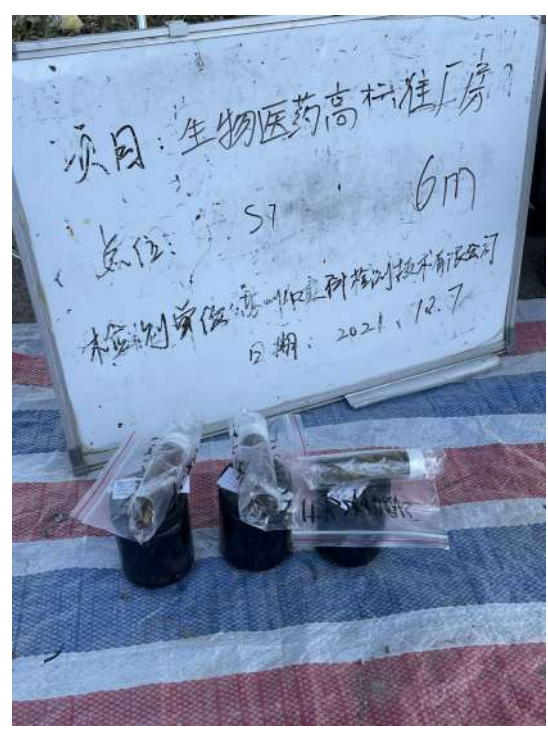 项目：生物医药高标准厂房
点位： S7 6m
检测单位：检测技术有限公司
日期：2021.12.7